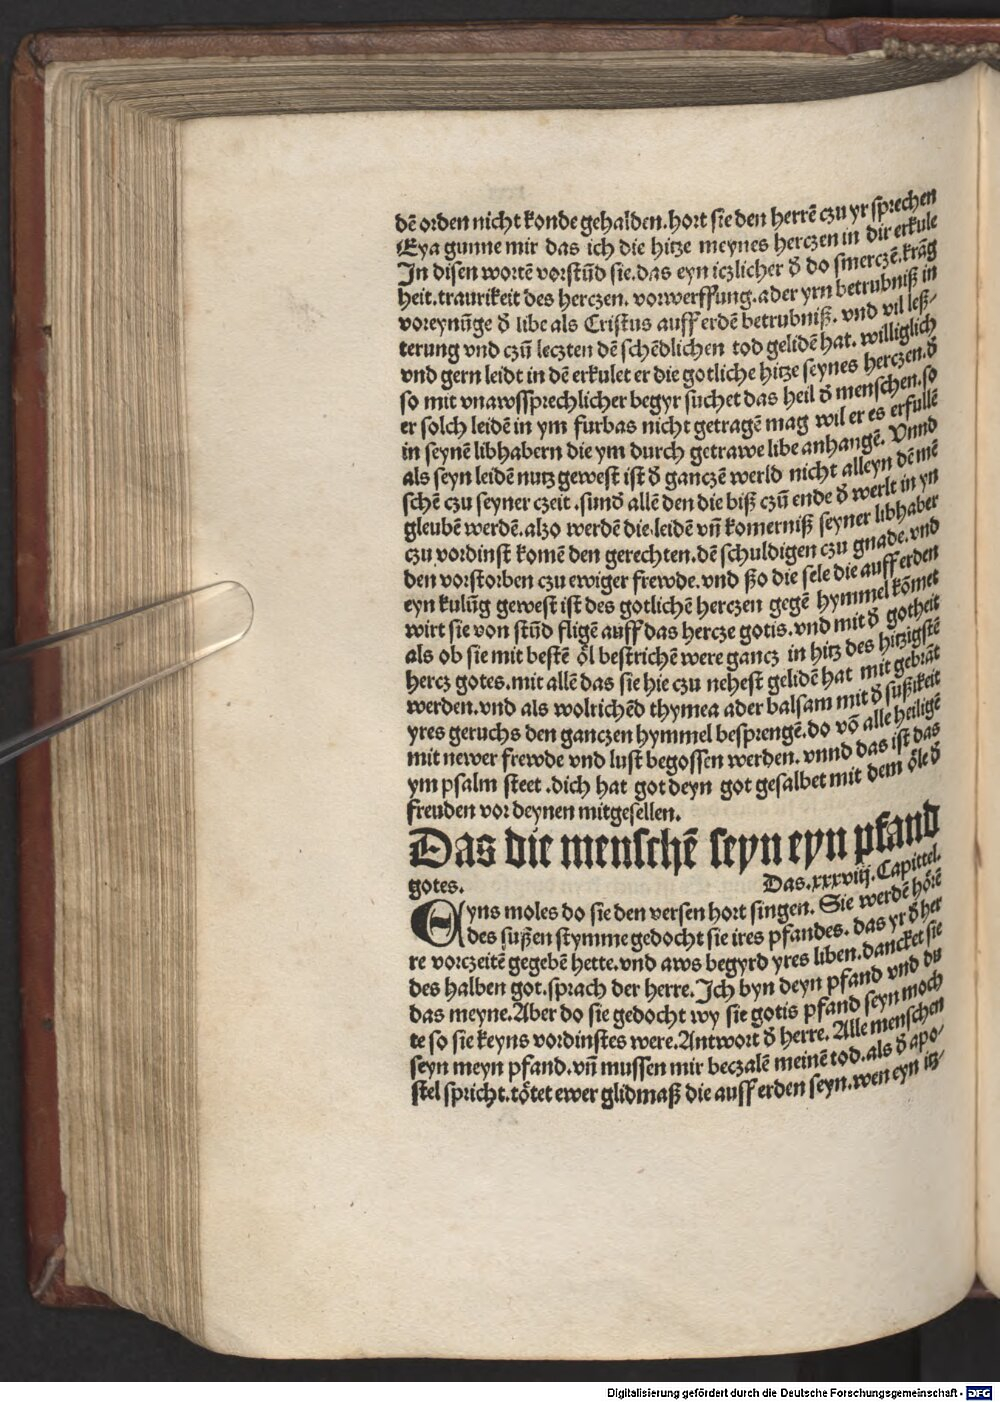 dē orden nicht konde gehalden. hort sie den herrē czu yr sprechen
Eya gunne mir das ich die hitze meynes herczen in dir erkule
In disen wortē vorstūd sie. das eyn iczlicher d̄ do smerczē. krāg
heit. traurikeit des herczen. vorwerffung. ader yrn betrubniß in
voreynūge d̄ libe als Cristus auff erdē betrubniß. vnd vil leß⸗
terung vnd czū leczten dē schēdlichen tod gelidē hat. williglich
vnd gern leidt in dē erkulet er die gotliche hitze seynes herczen. d̄
so mit vnawssprechlicher begyr suchet das heil d̄ menschen. so
er solch leidē in ym furbas nicht getragē mag wil er es erfullē
in seynē libhabern die ym durch getrawe libe anhangē. Vnnd
als seyn leidē nutz gewest ist d̄ ganczē werld nicht alleyn dē mē
schē czu seyner czeit . sund̄ allē den die biß czū ende d̄ werlt in yn
gleubē werdē. alzo werdē die. leidē vn̄ komerniß seyner libhaber
czu vordinst komē den gerechten. dē schuldigen czu gnade. vnd
den vorstorben czu ewiger frewde. vnd ßo die sele die auff erden
eyn kulūg gewest ist des gotlichē herczen gegē hymmel kōmet
wirt sie von stūd fligē auff das hercze gotis. vnd mit d̄ gotheit
als ob sie mit bestē öl bestrichē were gancz in hitz des hitzigstē
hercz gotes. mit allē das sie hie czu nehest gelidē hat mit gebrāt
werden. vnd als wolrichēd thymea ader balsam mit d̄ sußikeit
yres geruchs den ganczen hymmel besprengē. do vō alle heiligē
mit newer frewde vnd lust begossen werden. vnnd das ist das
ym psalm steet . dich hat got deyn got gesalbet mit dem öle d̄
freuden vor deynen mitgesellen.
Das die menschē seyn eyn pfand
gotes. Das. xxxviij. Capittel.
Eyns moles do sie den versen hort singen. Sie werdē hörē
des sußen stymme gedocht sie ires pfandes. das yr d̄ her
re vorczeitē gegebē hette. vnd aws begyrd yres liben. dancket sie
des halben got. sprach der herre. Ich byn deyn pfand vnd du
das meyne. Aber do sie gedocht wy sie gotis pfand seyn moch
te so sie keyns vordinstes were. Antwort d̄ herre. Alle menschen
seyn meyn pfand. vn̄ mussen mir beczalē meinē tod. als d̄ apo⸗
stel spricht. tötet ewer glidmaß die auff erden seyn. wen eyn itz⸗
Digitalisierung gefördert durch die Deutsche Forschungsgemeinschaft - DFG